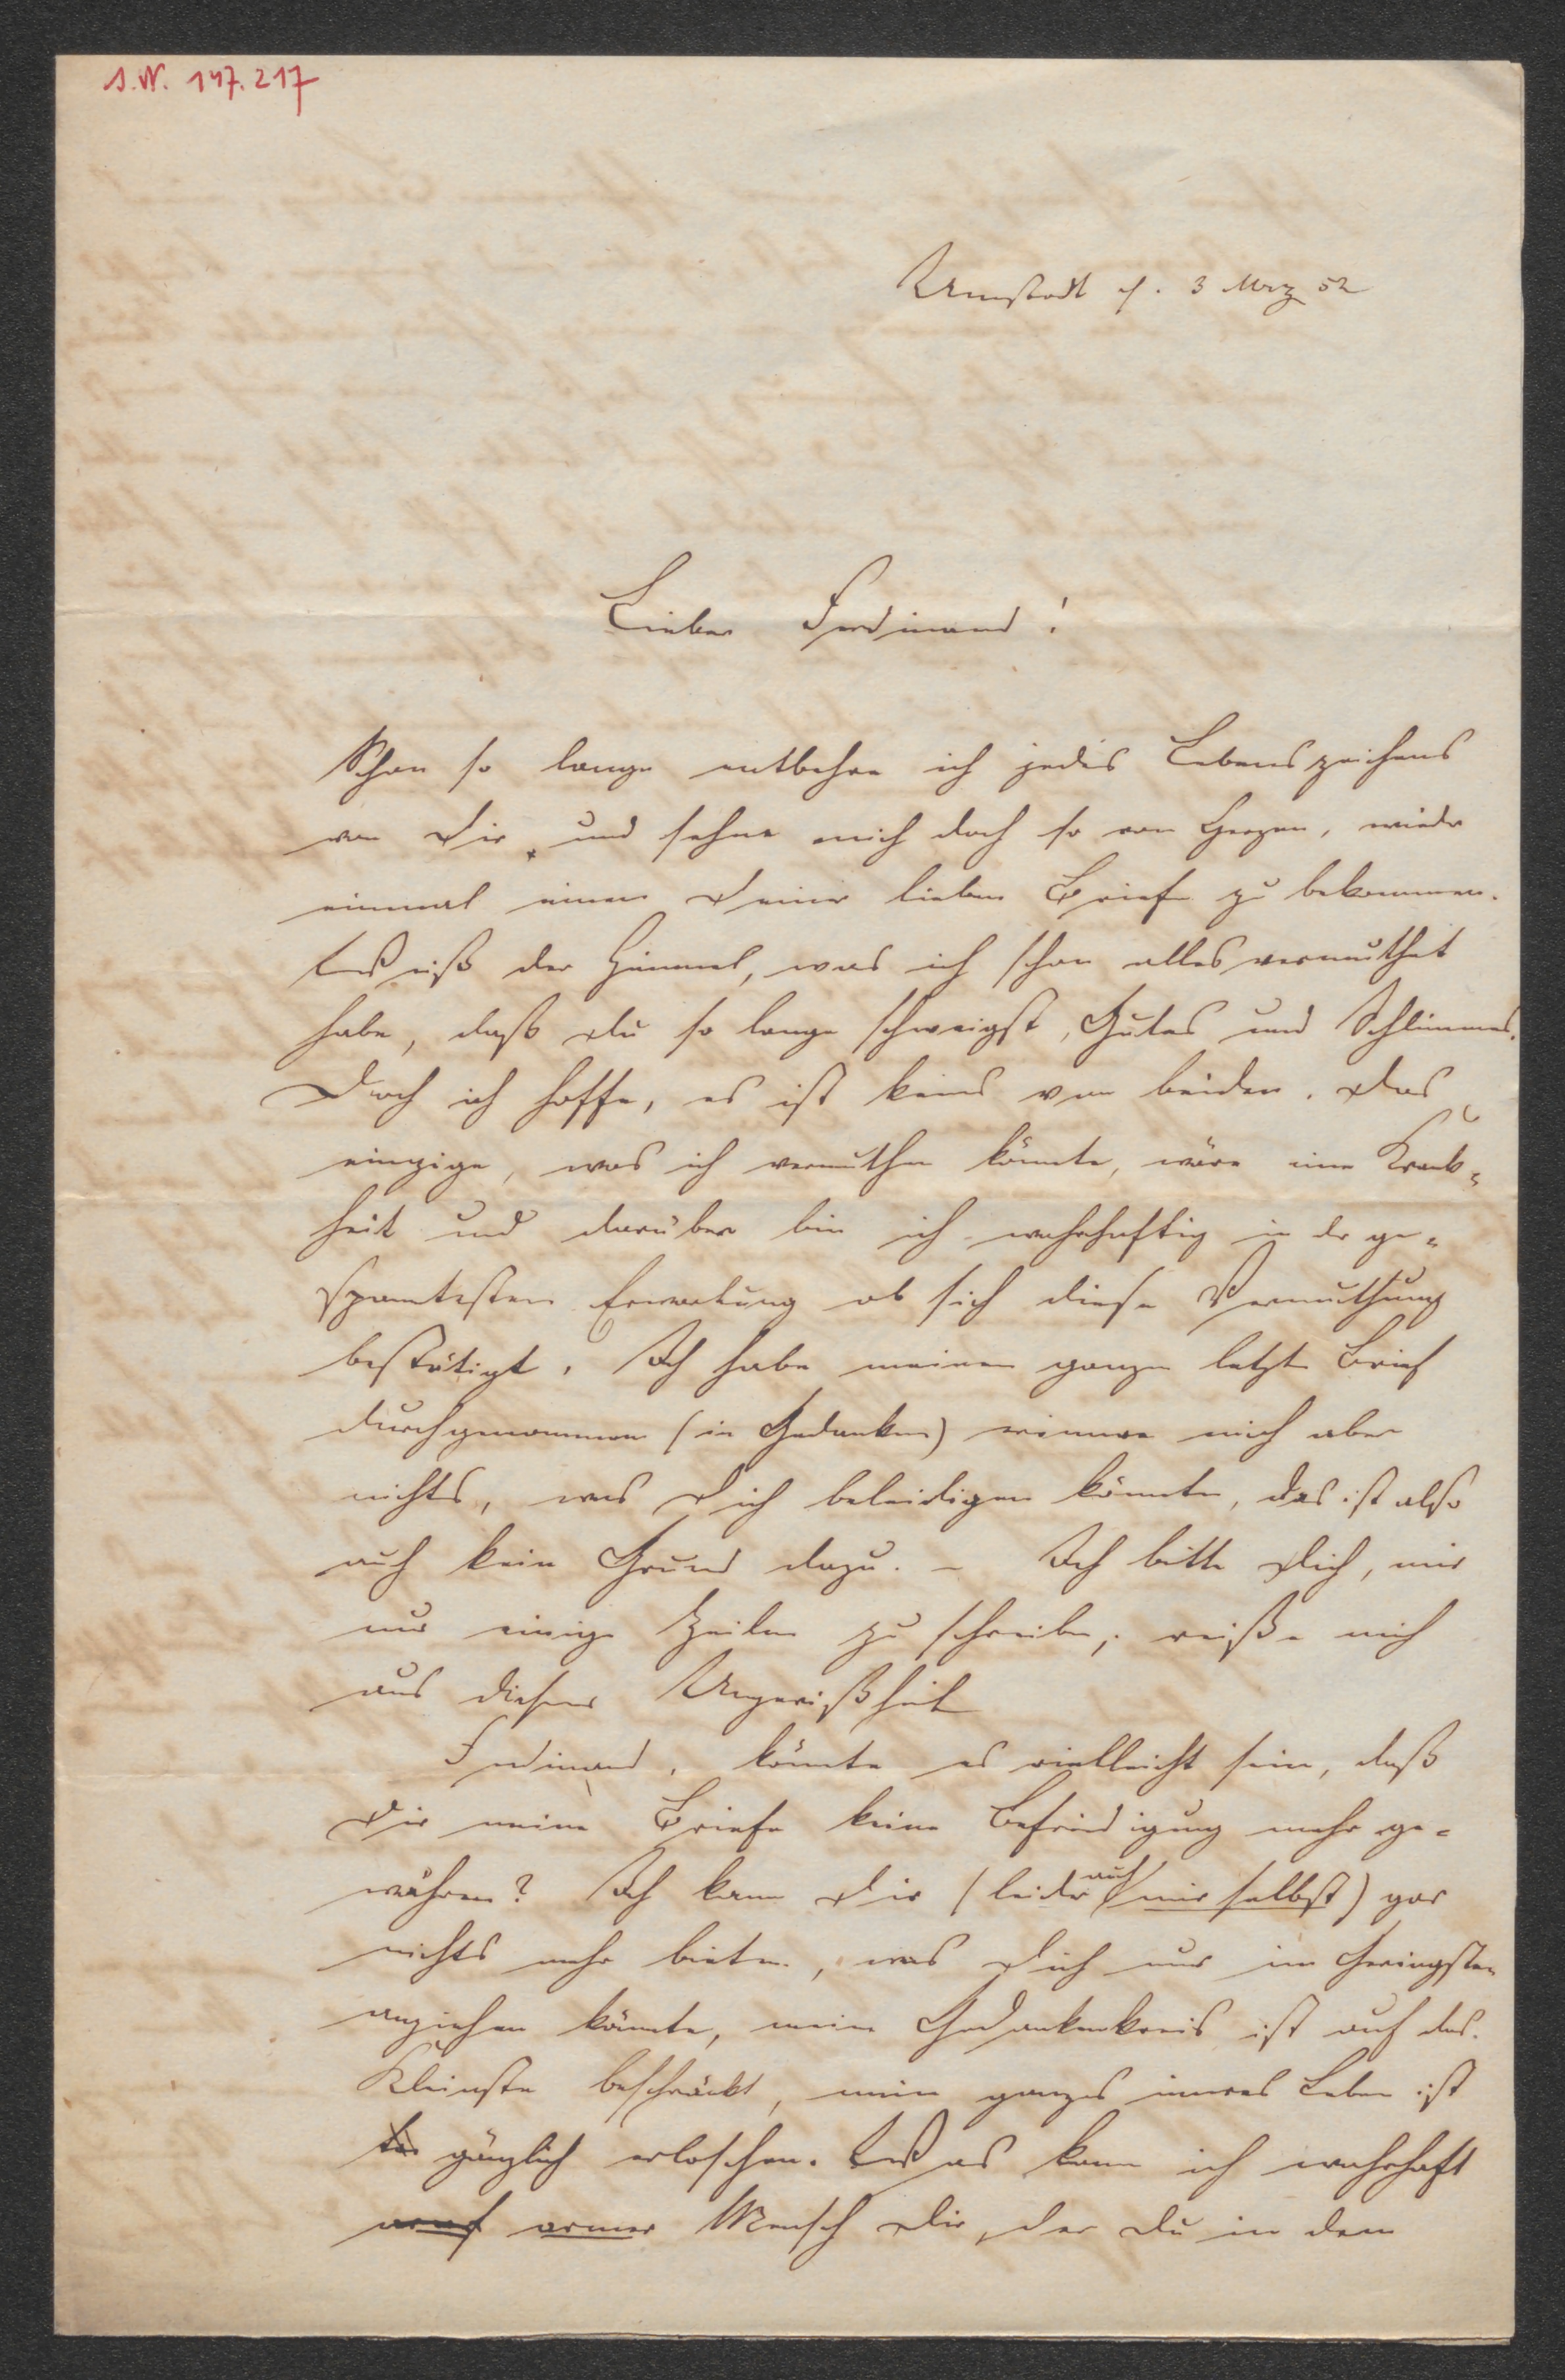 I.N. 147.217
Umstadt d. 3 Merz 52
Lieber Ferdinand!
Schon so lange entbehre ich jedes Lebenszeichens
von Dir, und sehne mich doch so von Herzen, wieder
einmal einen Deiner lieben Briefe zu bekommen.
Weiß der Himmel, was ich schon alles vermuthet
habe, daß Du so lange schweigst, Gutes und Schlimmes.
Doch ich hoffe, es ist keins von beiden. Das
einzige, was ich vermuthen könnte, wäre eine Krank-
heit und darüber bin ich wahrhaftig in der ge-
spanntesten Erwartung ob sich diese Vermuthung
bestätigt. Ich habe meinen ganzen letzten Brief
durchgenommen (in Gedanken) erinnere mich aber
nichts, was Dich beleidigen könnte, das ist also
auch kein Grund dazu. – Ich bitte Dich, mir
nur einige Zeilen zu schreiben, reiße mich
aus dieser Ungewißheit
Ferdinand, könnte es vielleicht sein, daß
Dir meine Briefe keine Befriedigung mehr ge-
währen? Ich kann Dir (leider auch mir selbst) gar
nichts mehr bieten, was Dich nur im Geringsten
anziehen könnte, mein Gedankenkreis ist auf das
Kleinste beschränkt, mein ganzes inneres Leben ist
gänzlich erloschen. Was kann ich wahrhaft
armer Mensch Dir, der Du in dem